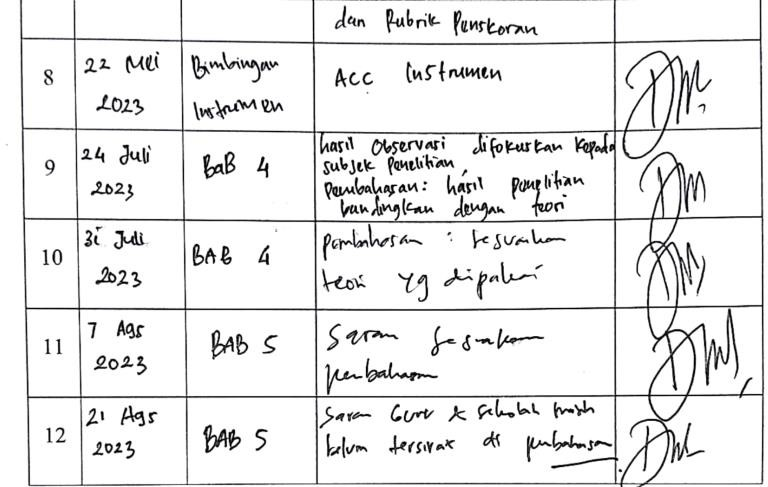 dan Rubrik Penskoran
8
22 Mei
2023
Bimbingan
Instrumen
ACC Instrumen
9
24 Juli
2023
BaB 4
hasil Observasi difokuskan kepada
subjek penelitian,
pembahasan: hasil penelitian
bandingkan dengan teori
10
31 Juli
2023
BAB 4
pembahasan : sesuaikan
teori yg dipakai
11
7 Ags
2023
BAB 5
Saran sesuaikan
pembahasan
12
21 Ags
2023
BAB 5
Saran Guru & sekolah masih
belum tersirat di pembahasan